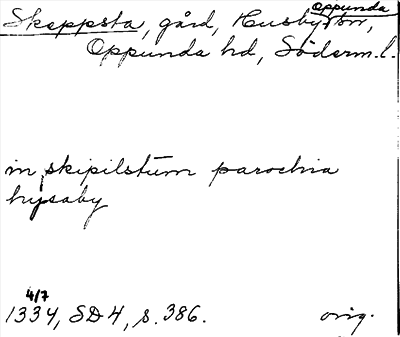 Skeppsta, gård, Husby-Oppunda sn,
Oppunda hd, Söderm.l.
in skipilstum parochia
hysaby
4/7
1334, SD4, s. 386. orig.